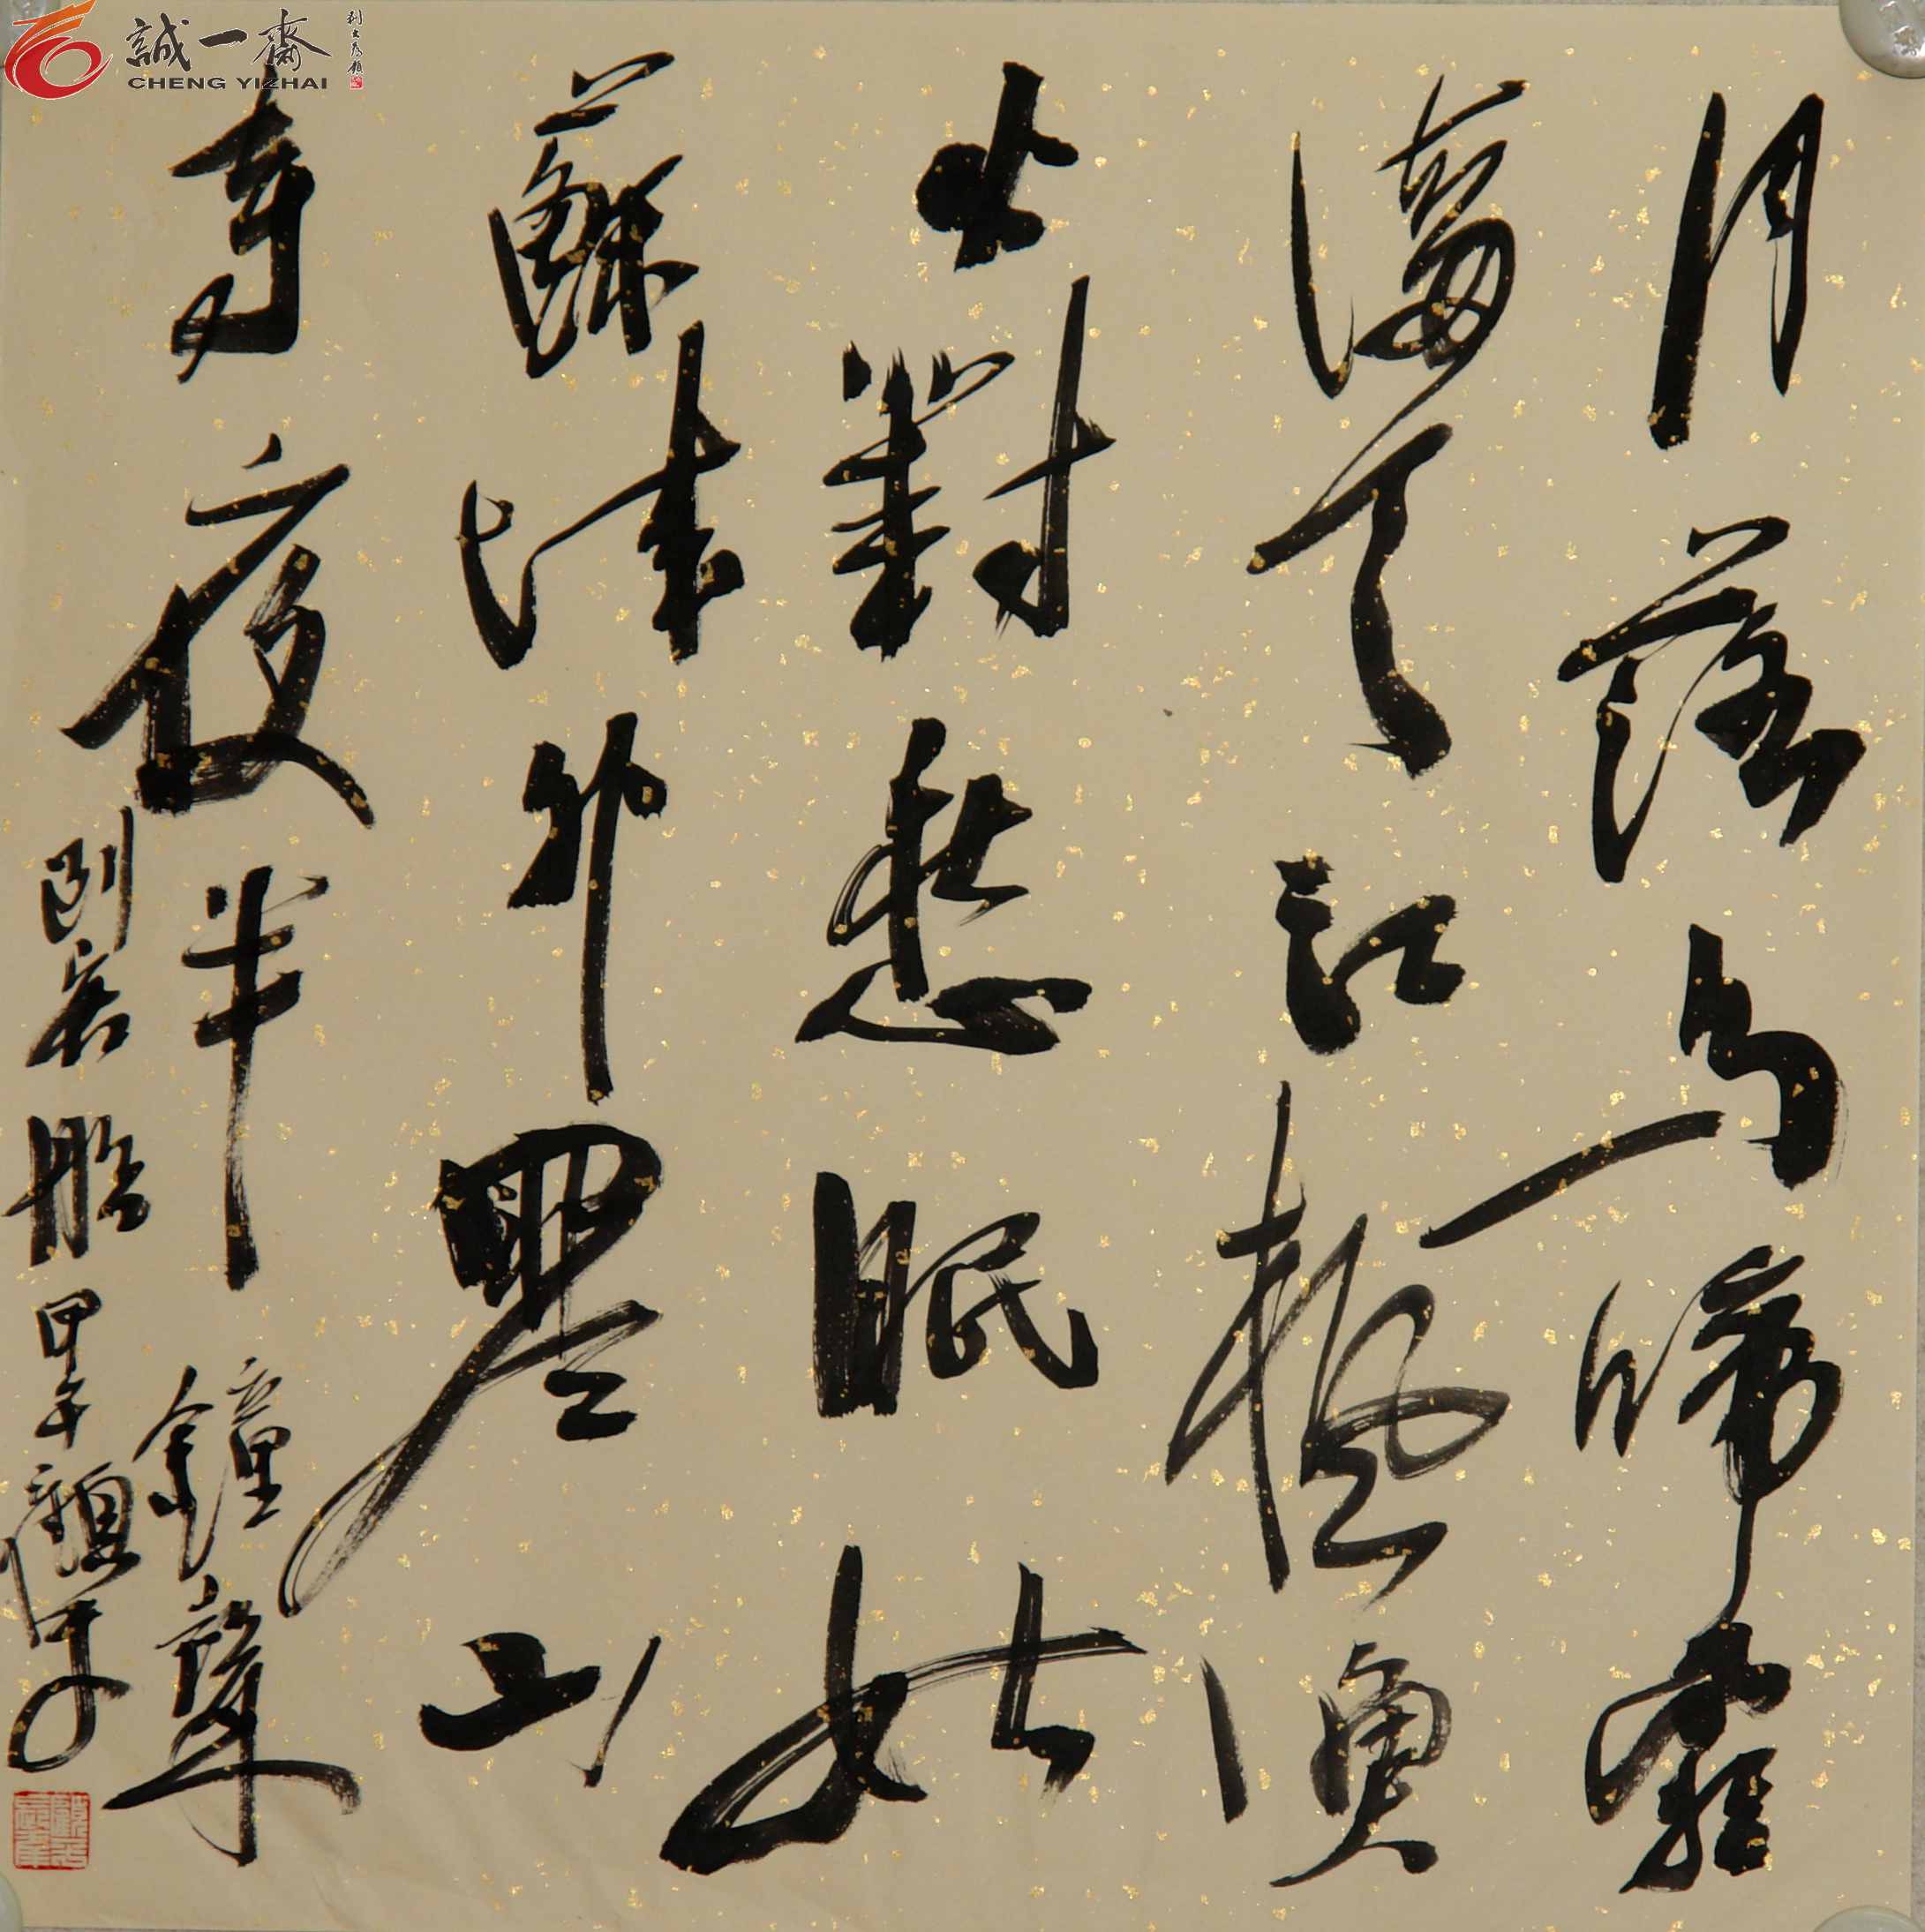 誠一齋
CHENG YIZHAI
月落烏啼霜
滿天江楓漁
火對愁眠姑
蘇城外寒山
寺夜半鐘聲
到客船 甲午